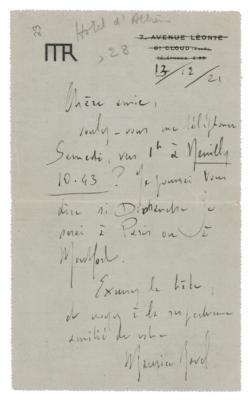 Hotel d'Athènes
, 28
MR
7, AVENUE LÉONIE
ST CLOUD
TÉLÉPHONE 2.33
12/12/21
Chère amie,
voulez-vous me téléphoner
Samedi, vers 1h à Neuilly
10.43 ? Je pourrai vous
dire si Dimanche je
serai à Paris ou à
Montfort.
Excusez la hâte,
et croyez à la respectueuse
amitié de votre
Maurice Ravel